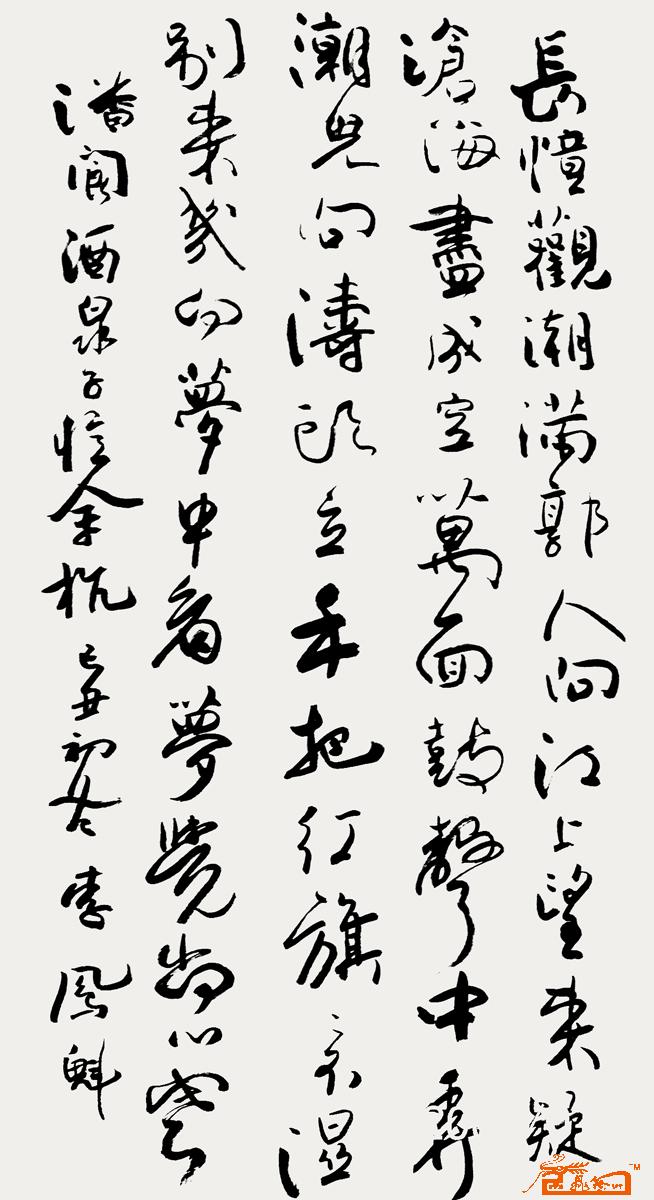 長憶觀潮滿郭人江上望来疑
滄海盡成空萬面鼓聲中弄
潮兒向濤頭立手把紅旗々不濕
别来幾向夢中看夢覺尚心寒
潘閬酒泉子憶余杭己丑初冬李鳳魁